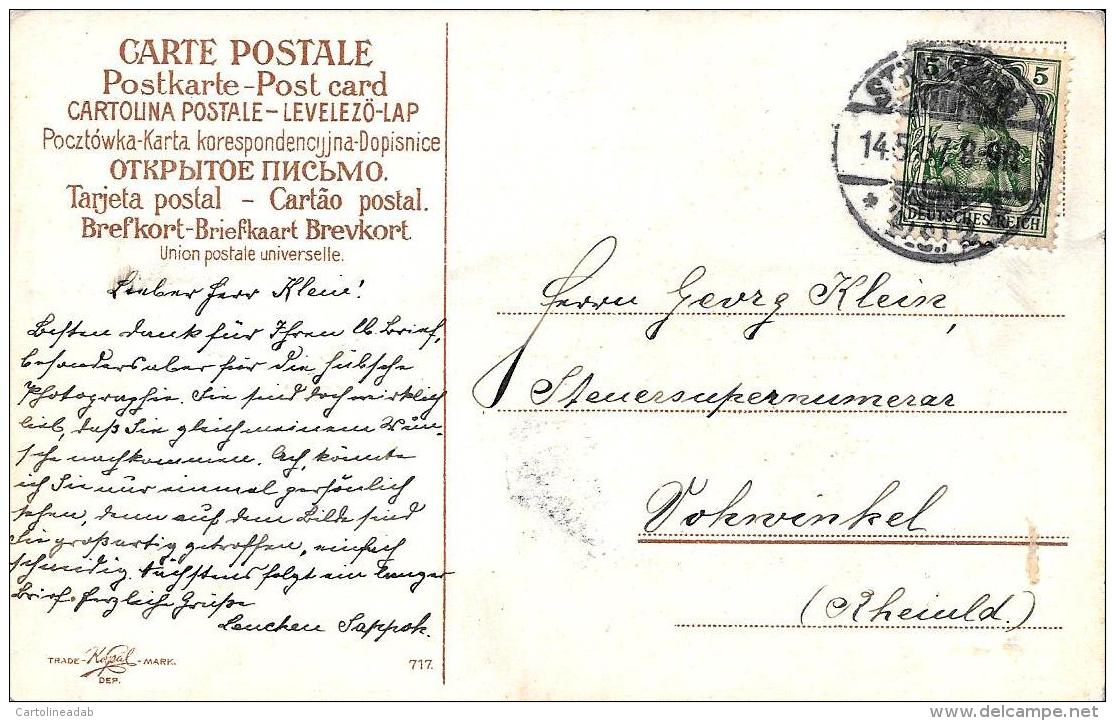 CARTE POSTALE
Postkarte-Post card
CARTOLINA POSTALE-LEVELEZÖ-LAP
Pocztówka-Karta korespondencyjna-Dopisnice
ОТКРЫТОЕ ПИСЬМО.
Tarjeta postal - Cartão postal.
Brefkort-Briefkaart Brevkort
Union postale universelle.
Lieber Herr Klein!
Besten Dank für Ihren lb. Brief,
besonders aber für die hübsche
Photographie. Sie sind doch wirklich
lieb, daß Sie gleich meinem Wun-
sche nachkommen. Ach, könnte
ich Sie nur einmal persönlich
sehen, denn auf dem Bilde sind
Sie großartig getroffen, einfach
schneidig. Nächstens folgt ein langer
Brief. Herzliche Grüße
Lenchen Sappok.
TRADE-Kopal-MARK.
DEP.
717.
5 5
DEUTSCHES REICH
14.5.07. 8-9
Herrn Georg Klein,
Steuersupernumerar
Vohwinkel
(Rheinld.)
Cartolineadab
delcampe.net